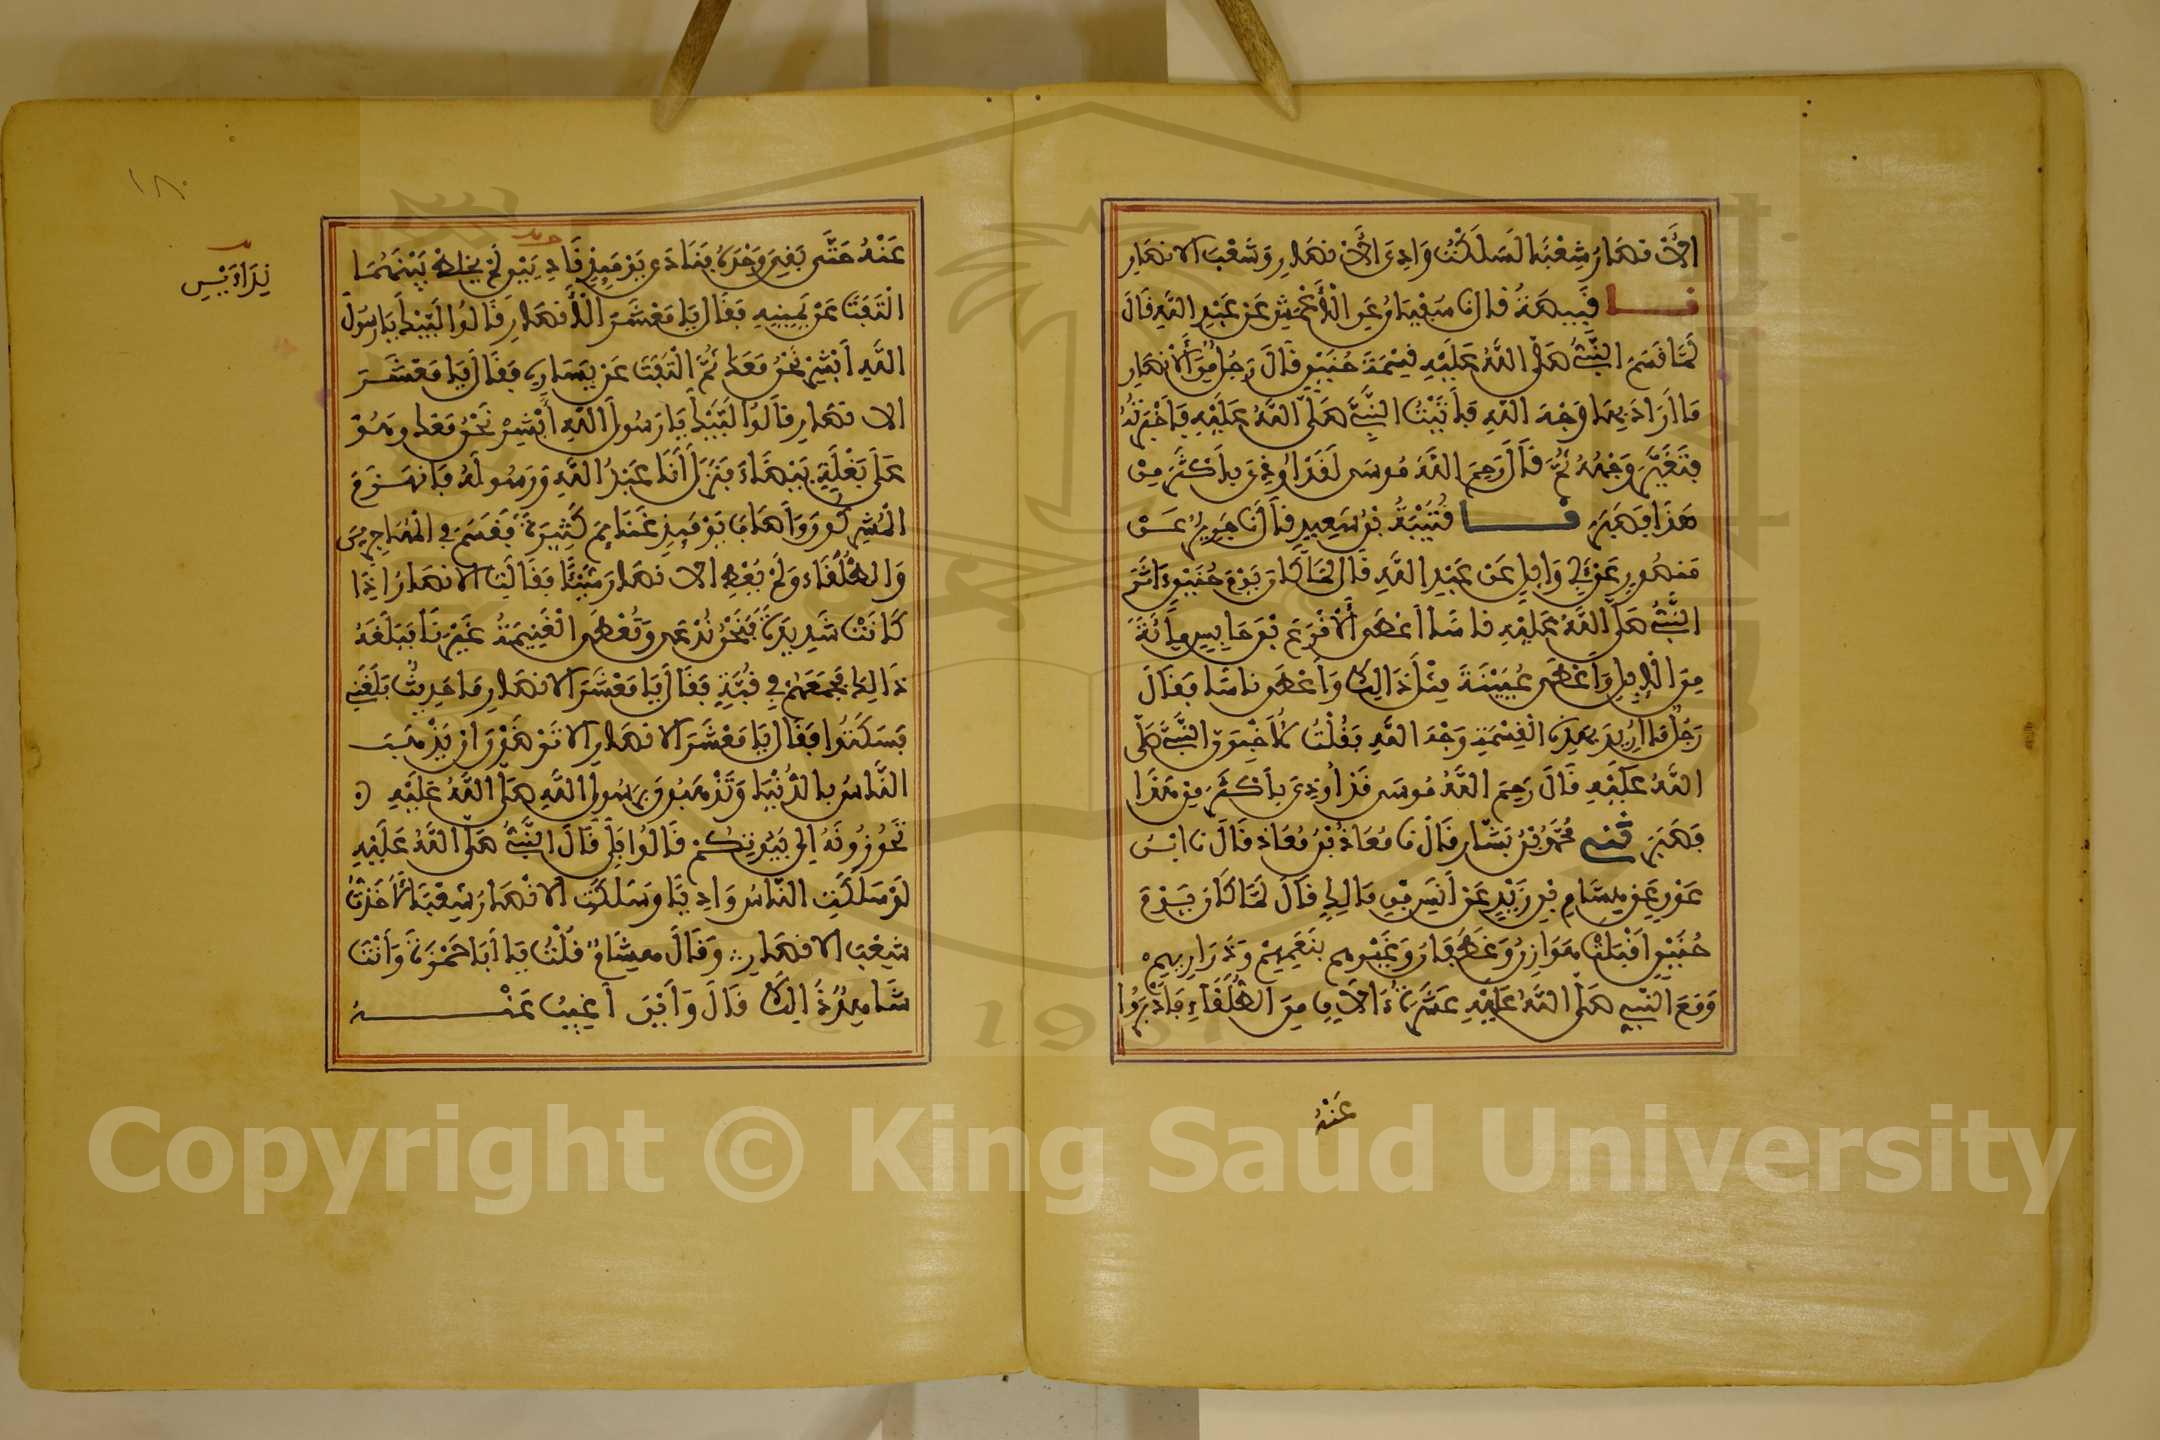 الأَنْصَارُ شِعْبًا لَسَلَكْتُ وَادِيَ الأَنْصَارِ وَشِعْبَ الانصَارِ
نا قَبِيصَةُ قال نا سُفْيَانُ عَنِ الْأَعْمَشِ عَنْ أبي وائل عَنْ عَبْدِ اللَّهِ قَالَ
لَمَّا قَسَمَ النَّبِيُّ صَلَّى اللَّهُ عَلَيْهِ قِسْمَةَ حُنَيْنٍ قَالَ رَجُلٌ مِنَ الْأَنْصَارِ
مَا أَرَادَ بِهَا وَجْهَ اللَّهِ فَأَتَيْتُ النَّبِيَّ صَلَّى اللَّهُ عَلَيْهِ فَأَخْبَرْتُهُ
فَتَغَيَّرَ وَجْهُهُ ثُمَّ قَالَ رَحِمَ اللَّهُ مُوسَى لَقَدْ أُوذِيَ بِأَكْثَرَ مِنْ
هَذَا فَصَبَرَ نا قُتَيْبَةُ بْنُ سَعِيدٍ قَالَ نَا جَرِيرٌ عَنْ
مَنْصُورٍ عَنْ أَبِي وَائِلٍ عَنْ عَبْدِ اللَّهِ قَالَ لَمَّا كَانَ يَوْمُ حُنَيْنٍ ءَاثَرَ
النَّبِيُّ صَلَّى اللَّهُ عَلَيْهِ نَاسًا أَعْطَى الْأَقْرَعَ بْنَ حَابِسٍ مِائَةً
مِنَ الْإِبِلِ وَأَعْطَى عُيَيْنَةَ مِثْلَ ذَالِكَ وَأَعْطَى نَاسًا فَقَالَ
رَجُلٌ مَا أُرِيدَ بِهَذِهِ الْقِسْمَةِ وَجْهُ اللَّهِ فَقُلْتُ لَأُخْبِرَنَّ النَّبِيَّ صَلَّى
اللَّهُ عَلَيْهِ قَالَ رَحِمَ اللَّهُ مُوسَى قَدْ أُوذِيَ بِأَكْثَرَ مِنْ هَذَا
فَصَبَرَ مُحَمَّدُ بْنُ بَشَّارٍ قَالَ نَا مُعَاذُ بْنُ مُعَاذٍ قَالَ نَا ابْنُ
عَوْنٍ عَنْ هِشَامِ بْنِ زَيْدٍ عَنْ أَنَسِ بْنِ مَالِكٍ قَالَ لَمَّا كَانَ يَوْمُ
حُنَيْنٍ أَقْبَلَتْ هَوَازِنُ وَغَطَفَانُ وَغَيْرُهم بِنَعَمِهِمْ وَذَرَارِيهِمْ
وَمَعَ النَّبِيِّ صَلَّى اللَّهُ عَلَيْهِ عَشَرَةُ ءَالَافٍ مِنَ الطُّلَقَاءِ فَأَدْبَرُوا
عَنْهُ
١٨٠
عَنْهُ حَتَّى بَقِيَ وَحْدَهُ فَنَادَى يَوْمَئِذٍ نِدَاءَيْنِ لَمْ يَخْلِطْ بَيْنَهُمَا
نِدَاءَيْنِ
الْتَفَتَ عَنْ يَمِينِهِ فَقَالَ يَا مَعْشَرَ الْأَنْصَارِ قَالُوا لَبَّيْكَ يَا رَسُولَ
اللَّهِ أَبْشِرْ نَحْنُ مَعَكَ ثُمَّ الْتَفَتَ عَنْ يَسَارِهِ فَقَالَ يَا مَعْشَرَ
الانصَارِ قَالُوا لَبَّيْكَ يَا رَسُولَ اللَّهِ أَبْشِرْ نَحْنُ مَعَكَ وَهُوَ
عَلَى بَغْلَةٍ بَيْضَاءَ فَنَزَلَ أَنَا عَبْدُ اللَّهِ وَرَسُولُهُ فَانْهَزَمَ
الْمُشْرِكُونَ وَأَصَابَ يَوْمَئِذٍ غَنَائِمَ كَثِيرَةً فَقَسَمَ فِي الْمُهَاجِرِينَ
وَالطُّلَقَاءِ وَلَمْ يُعْطِ الانصَارَ شَيْئًا فَقَالَتِ الانصَارُ إِذَا
كَانَتْ شَدِيدَةٌ فَنَحْنُ نُدْعَى وَتُعْطَى الْغَنِيمَةُ غَيْرَنَا فَبَلَغَهُ
ذَالِكَ فَجَمَعَهُمْ فِي قُبَّةٍ فَقَالَ يَا مَعْشَرَ الانصَارِ مَا حَدِيثٌ بَلَغَنِي
فَسَكَتُوا فَقَالَ يَا مَعْشَرَ الانصَارِ الا تَرْضَوْنَ ان يَذْهَبَ
النَّاسُ بِالدُّنْيَا وَتَذْهَبُونَ بِرَسُولِ اللَّهِ صَلَّى اللَّهُ عَلَيْهِ
تَحُوزُونَهُ إِلَى بُيُوتِكُمْ قَالُوا بَلَى قَالَ النَّبِيُّ صَلَّى اللَّهُ عَلَيْهِ
لَوْ سَلَكَتِ النَّاسُ وَادِيًا وَسَلَكَتِ الانْصَارُ شِعْبًا لَأَخَذْتُ
شِعْبَ الانصَارِ وَقَالَ هِشَامٌ قُلْتُ يَا أَبَا حَمْزَةَ وَأَنْتَ
شَاهِدٌ ذَالِكَ قَالَ وَأَيْنَ أَغِيبُ عَنْهُ
Copyright © King Saud University
1957